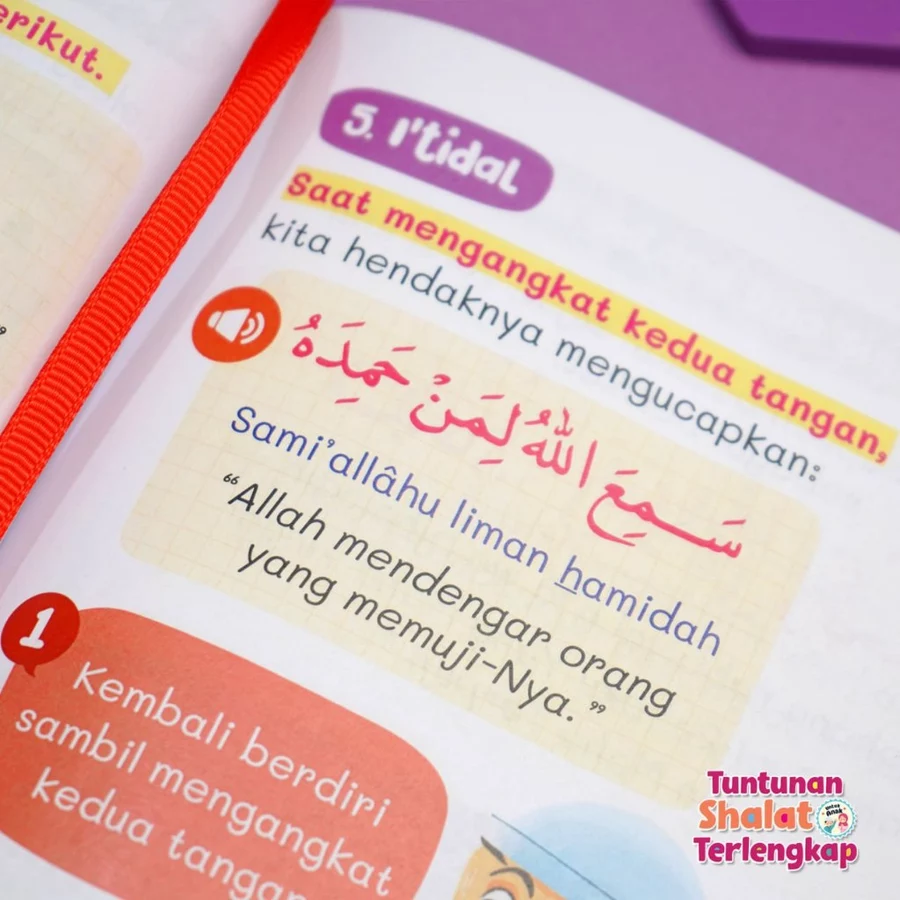 erikut.
5. I'tidal
Saat mengangkat kedua tangan,
kita hendaknya mengucapkan:
سَمِعَ اللّٰهُ لِمَنْ حَمِدَهُ
Sami'allâhu liman hamidah
"Allah mendengar orang
yang memuji-Nya."
1
Kembali berdiri
sambil mengangkat
kedua tangan
Tuntunan
Shalat
untuk Anak
Terlengkap